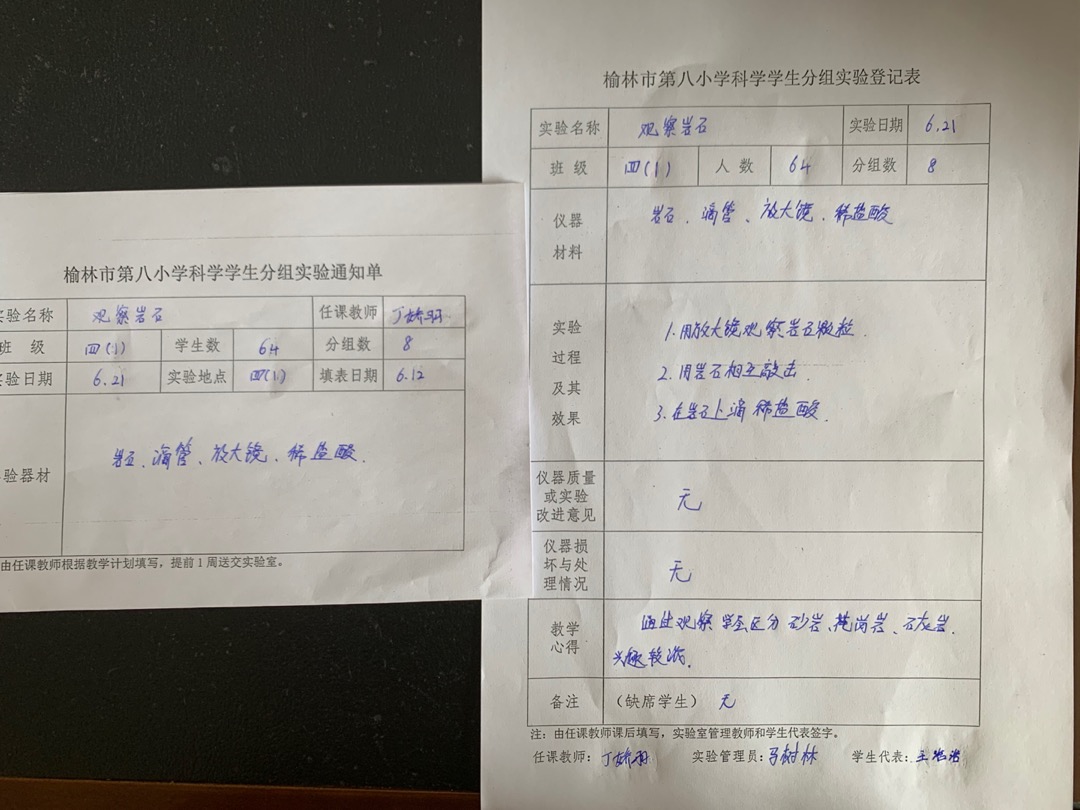 榆林市第八小学科学学生分组实验通知单
实验名称 观察岩石 任课教师
班 级 四(1) 学生数 64 分组数 8
实验日期 6.21 实验地点 四(1) 填表日期 6.12
验器材 岩石、滴管、放大镜、稀盐酸.
由任课教师根据教学计划填写，提前1周送交实验室。
榆林市第八小学科学学生分组实验登记表
实验名称 观察岩石 实验日期 6.21
班 级 四(1) 人 数 64 分组数 8
仪器
材料
岩石、滴管、放大镜、稀盐酸
实验
过程
及其
效果
1.用放大镜观察岩石颗粒.
2.用岩石相互敲击.
3.在岩石上滴稀盐酸.
仪器质量
或实验
改进意见
无
仪器损
坏与处
理情况
无
教学
心得
通过观察 区分砂岩、岩、石灰岩.
兴趣较浓.
备注 （缺席学生） 无
注：由任课教师课后填写，实验室管理教师和学生代表签字。
任课教师： 实验管理员：马树林 学生代表：王